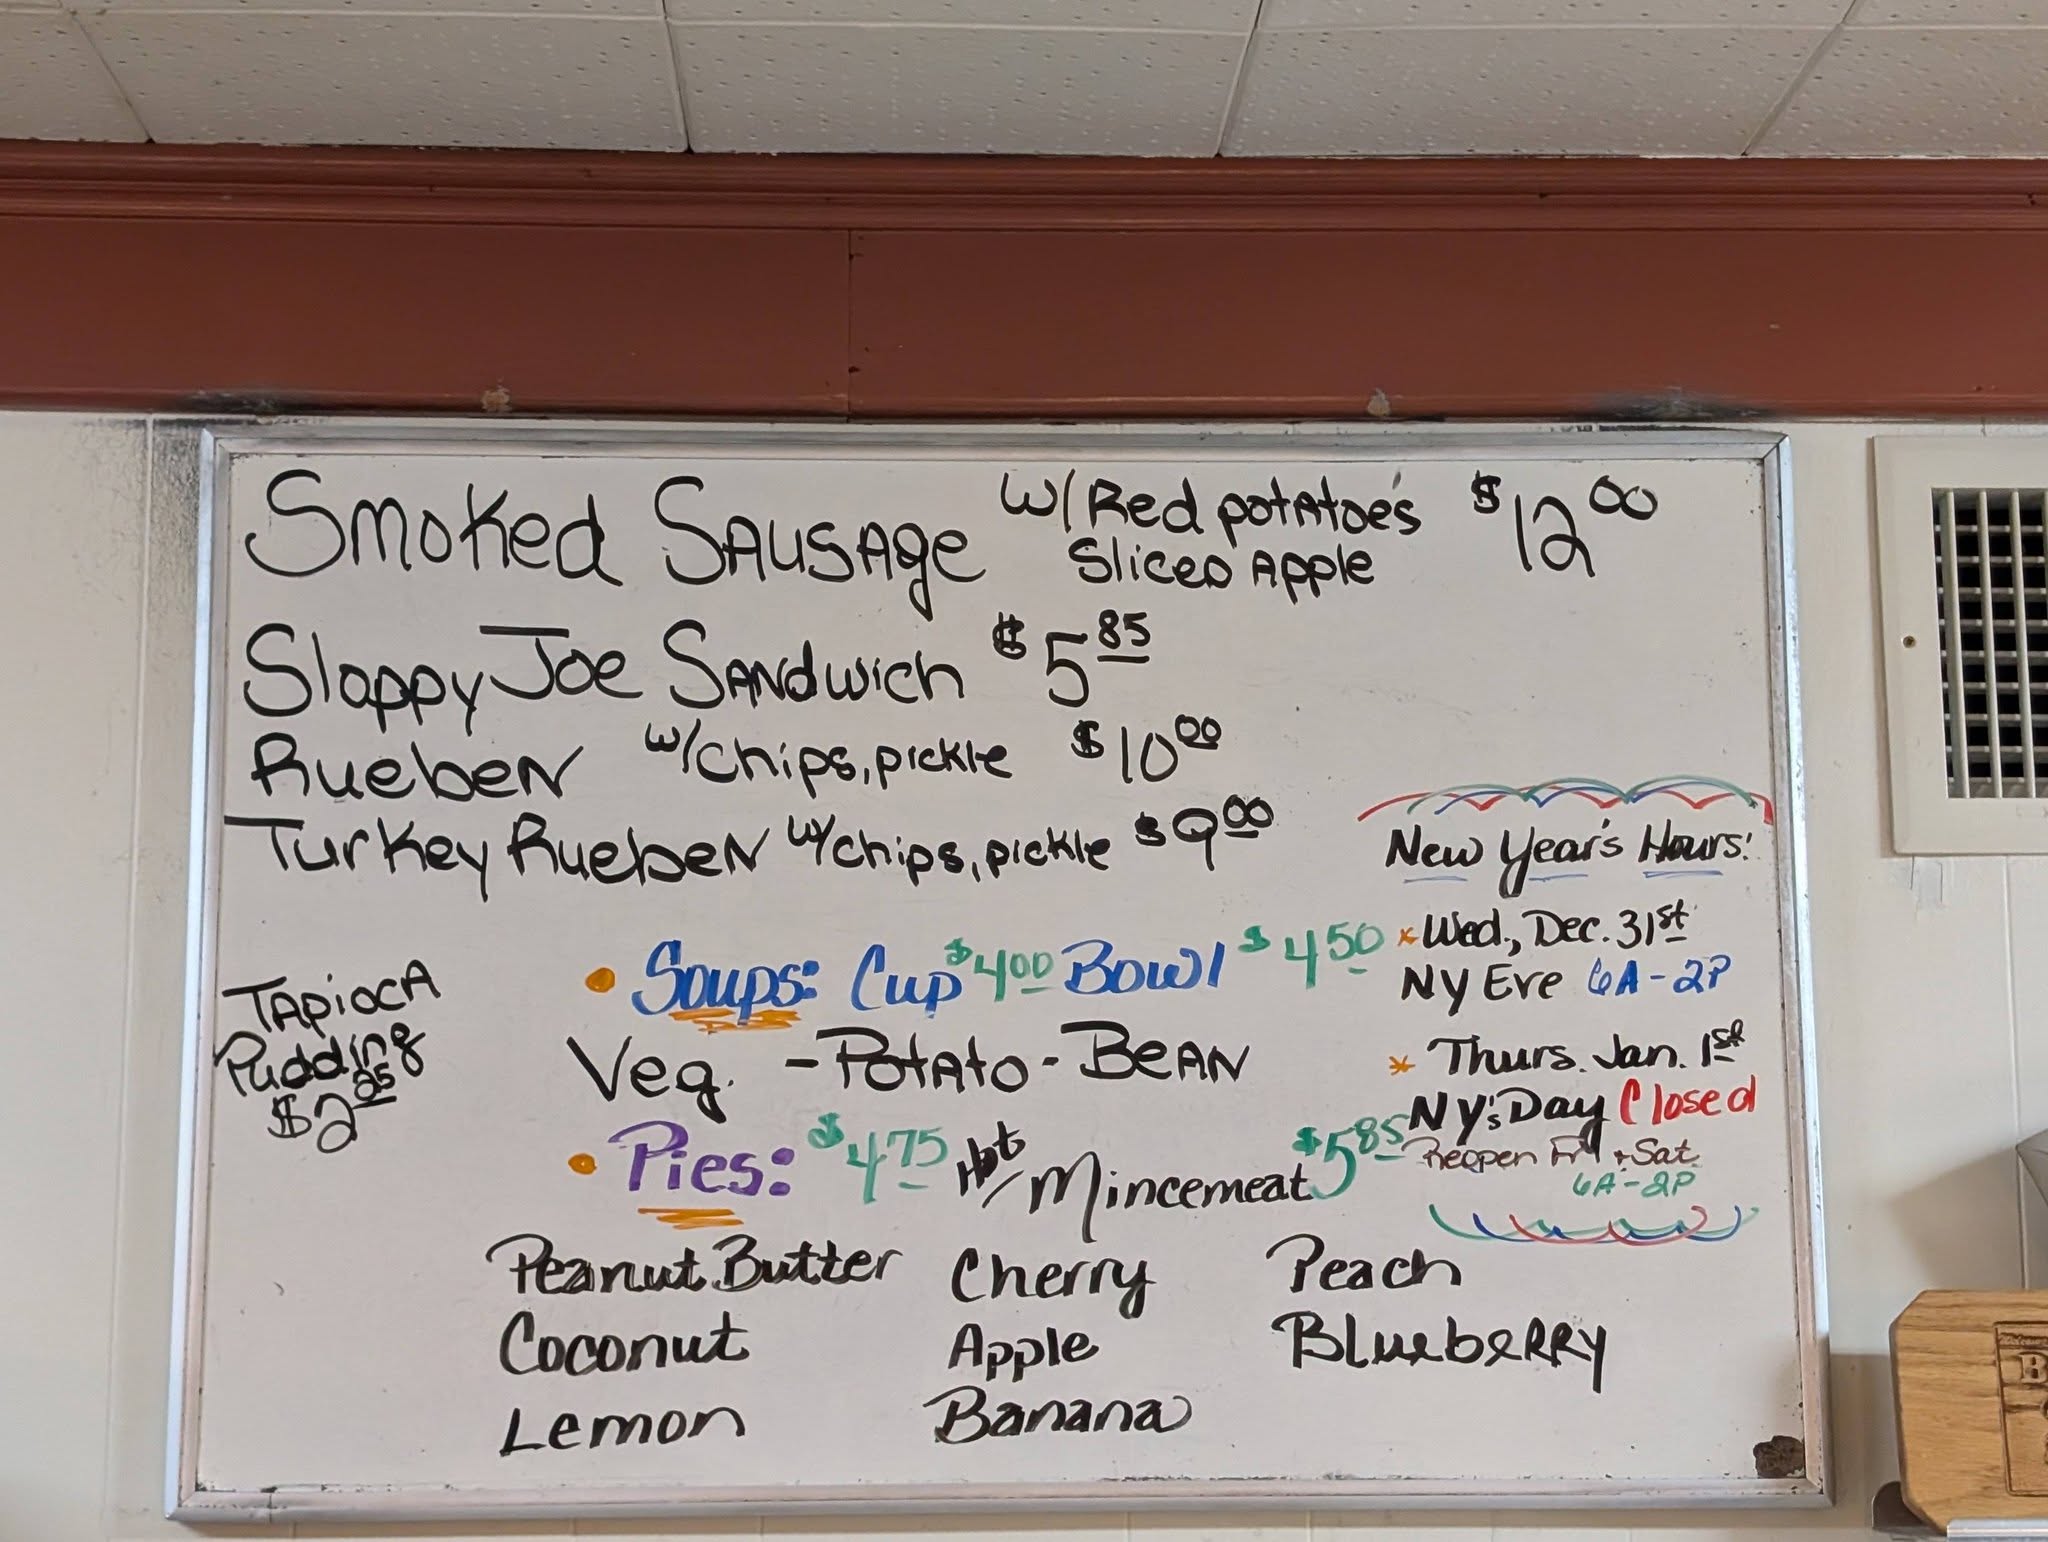 Smoked Sausage w/Red potatoe's $12.00
Sliced Apple
Sloppy Joe Sandwich $5.85
Rueben w/chips, pickle $10.00
Turkey Rueben w/chips, pickle $9.00
New Year's Hours!
* Wed., Dec. 31st
NY Eve 6A-2P
* Thurs. Jan. 1st
NY's Day Closed
Reopen Fri + Sat.
6A-2P
Tapioca
Pudding
$2.25
• Soups: Cup $4.00 Bowl $4.50
Veg. - Potato - Bean
• Pies: $4.75 Hot/Mincemeat $5.85
Peanut Butter Cherry Peach
Coconut Apple Blueberry
Lemon Banana